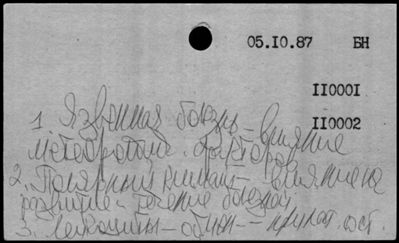 05.10.87 БН
110001
110002
1 Язвенная болезнь – влияние
метеоролог. факторов
2. Полярный климат – влияние на
развитие и течение болезни
3. Лейкоциты – обмен –